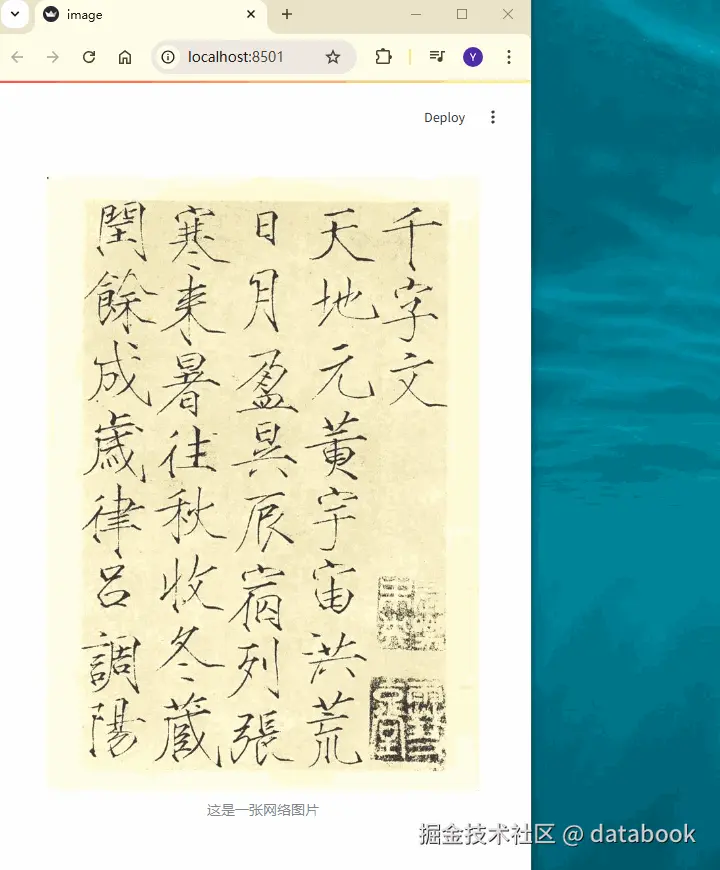 image
localhost:8501
Y
Deploy
千字文
天地元黄宇宙洪荒
日月盈昃辰宿列張
寒来暑往秋收冬蔵
閏餘成歳律呂調陽
这是一张网络图片
掘金技术社区 @ databook